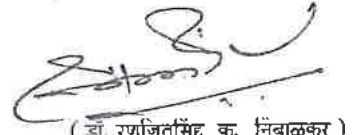 ( डॉ. रणजितसिंह क. निंबाळकर )